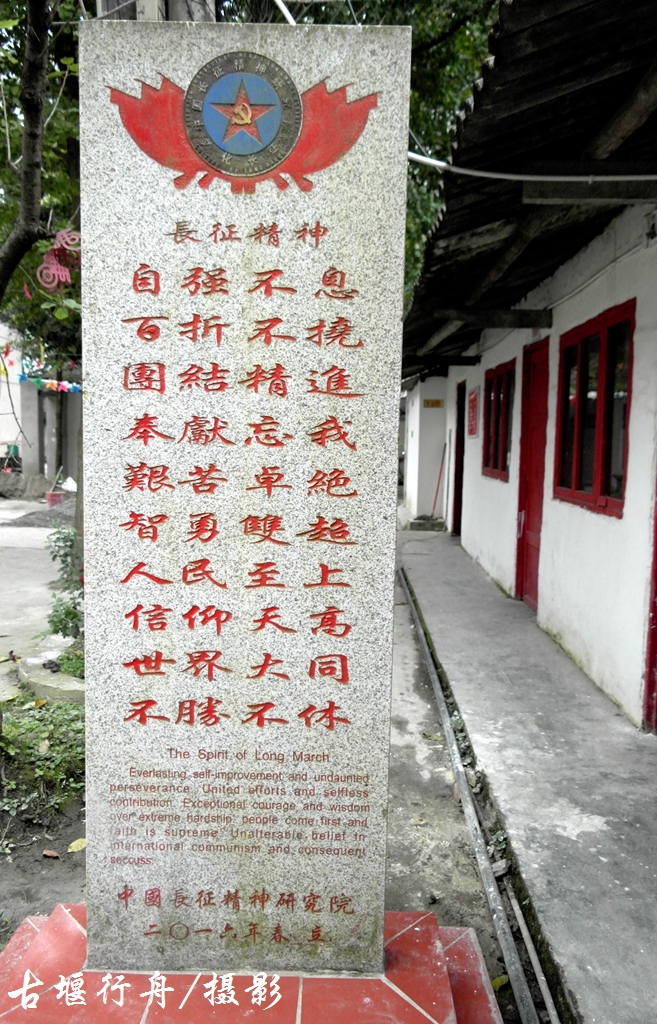 長征精神
自强不息
百折不撓
團結精進
奉獻忘我
艱苦卓絶
智勇雙超
人民至上
信仰天高
世界大同
不勝不休
The Spirit of Long March
Everlasting self-improvement and undaunted
perseverance. United efforts and selfless
contribution. Exceptional courage and wisdom
over extreme hardship: people come first and
faith is supreme. Unalterable belief in
international communism and consequent
seccuss.
中國長征精神研究院
二〇一六年春 立
古堰行舟/摄影